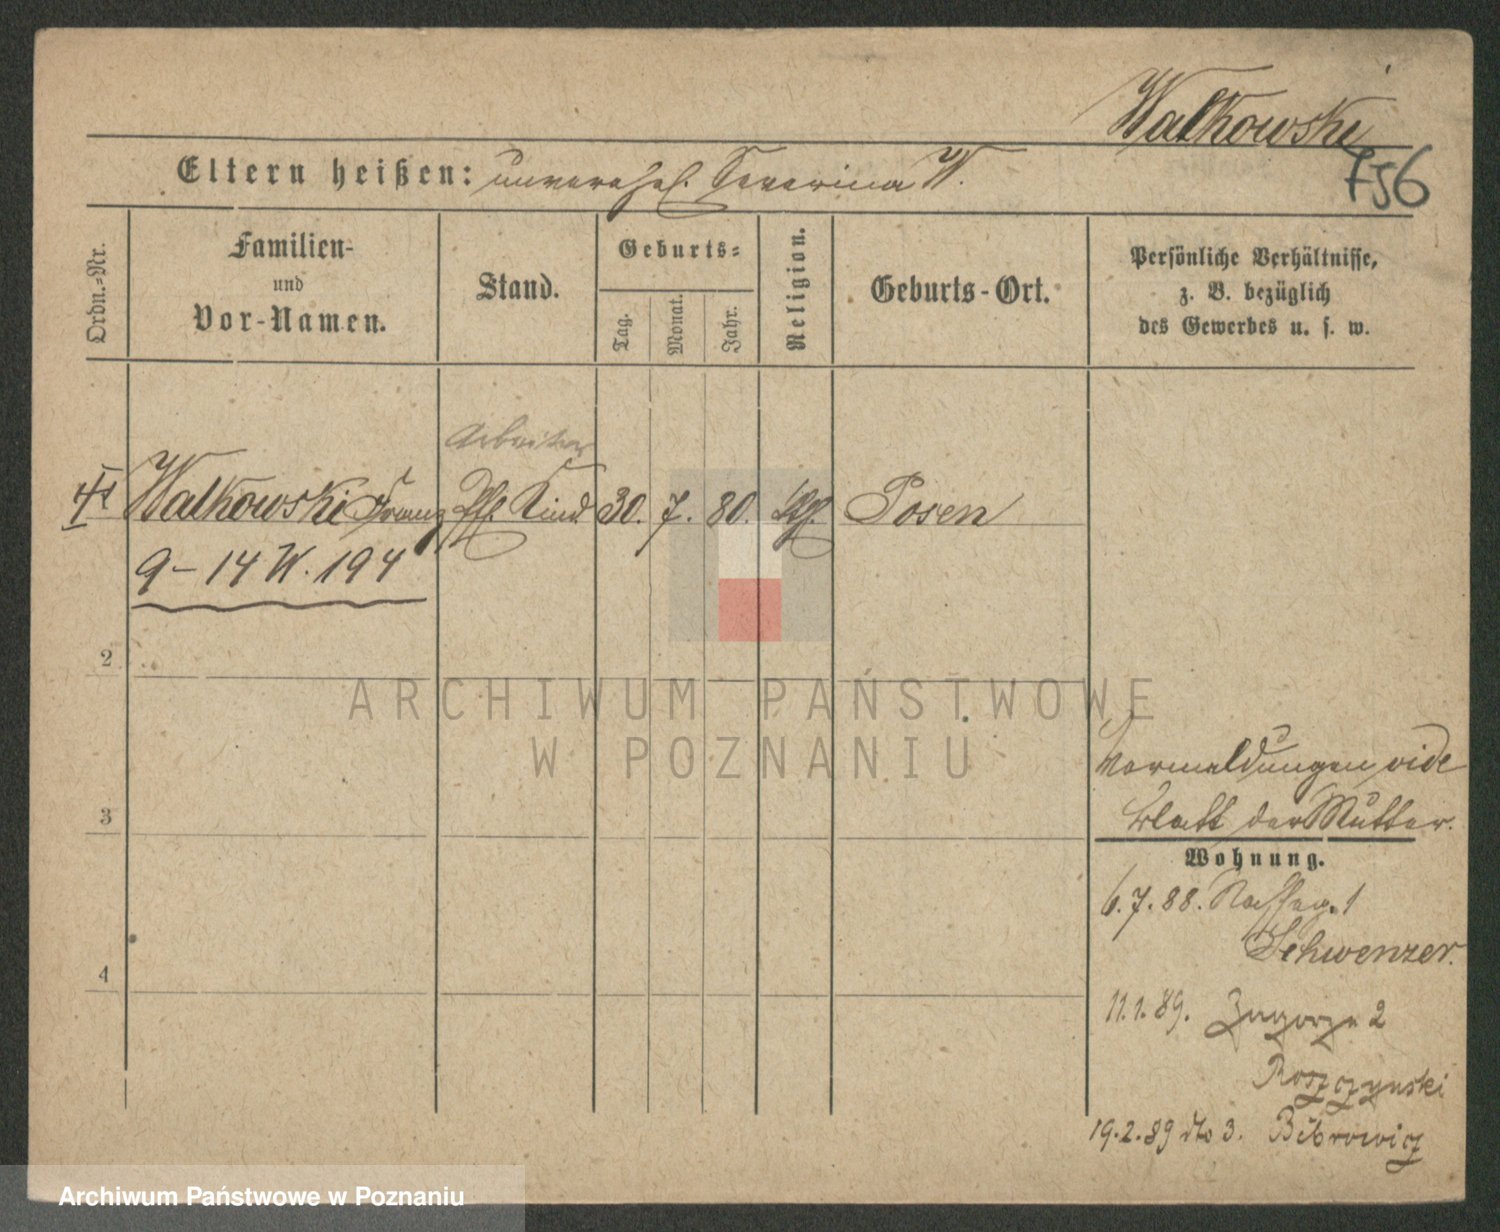 Walkowski
756
Eltern heißen: unverehel. Severina W.
Ordn.=Nr.
Familien-
und
Vor-Namen.
Stand.
Geburts=
Tag.
Monat.
Jahr.
Religion.
Geburts-Ort.
Persönliche Verhältnisse,
z. B. bezüglich
des Gewerbes u. s. w.
Arbeiter
Walkowski Franz Kind 30. 7. 80. Posen
9-14 W. 194
2
3
4
Vormeldungen vide
Blatt der Mutter.
Wohnung.
6.7.88. 1
Schwenzer.
11.1.89. Zagorze 2
Roszczynski
19.2.89 dto 3. Bibrowicz
ARCHIWUM PAŃSTWOWE
W POZNANIU
Archiwum Państwowe w Poznaniu